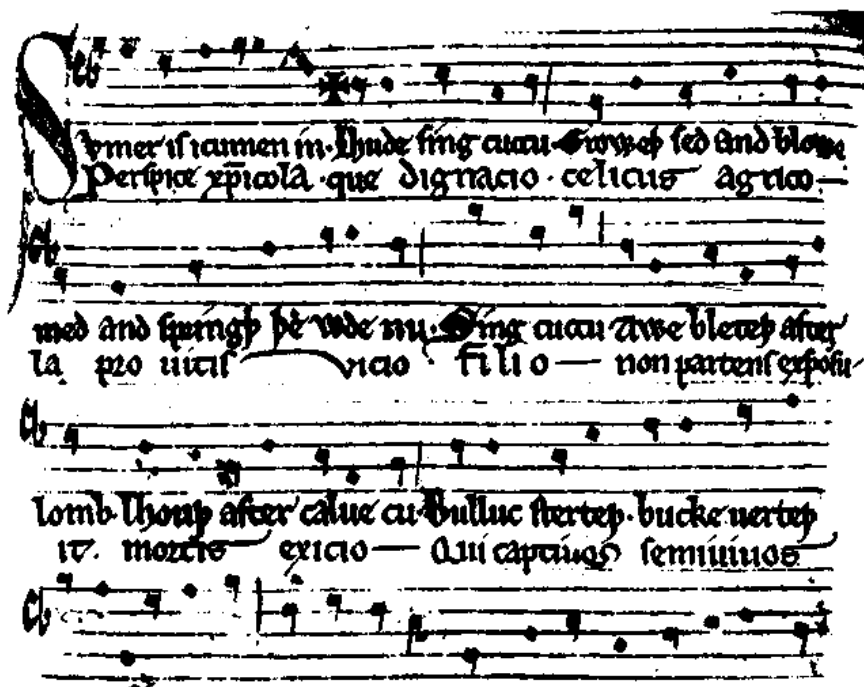 Sumer is icumen in · Lhude sing cuccu · Groweþ sed and blowe
Perspice xp̄icola · que dignacio · celicus agrico
med and springþ þe wde nu · Sing cuccu Awe bleteþ after
la pro uitis vicio filio non parcens exposu
lomb · lhouþ after calue cu · Bulluc sterteþ · bucke uerteþ
it mortis exicio Qui captiuos semiuiuos